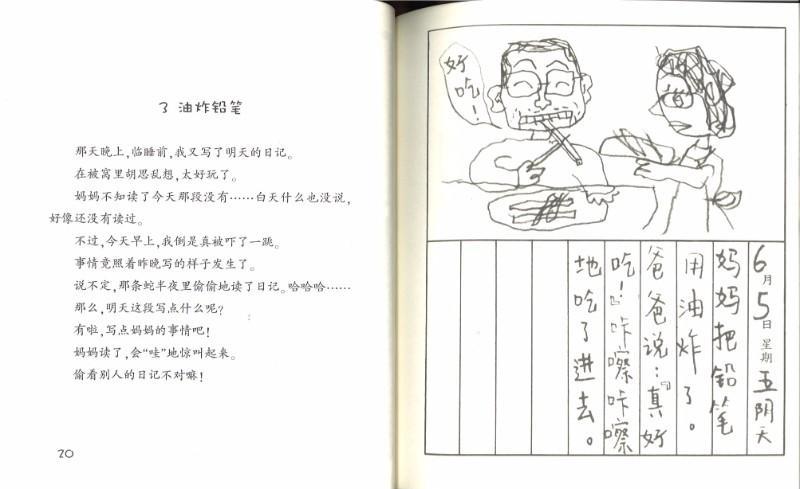 3 油炸铅笔
那天晚上,临睡前,我又写了明天的日记。
在被窝里胡思乱想,太好玩了。
妈妈不知读了今天那段没有……白天什么也没说,
好像还没有读过。
不过,今天早上,我倒是真被吓了一跳。
事情竟照着昨晚写的样子发生了。
说不定,那条蛇半夜里偷偷地读了日记。哈哈哈……
那么,明天这段写点什么呢?
有啦,写点妈妈的事情吧!
妈妈读了,会“哇”地惊叫起来。
偷看别人的日记不对嘛!
20
好吃!
6月5日 星期五 阴天
妈妈把铅笔
用油炸了。
爸爸说:“真好
吃!”咔嚓咔嚓
地吃了进去。